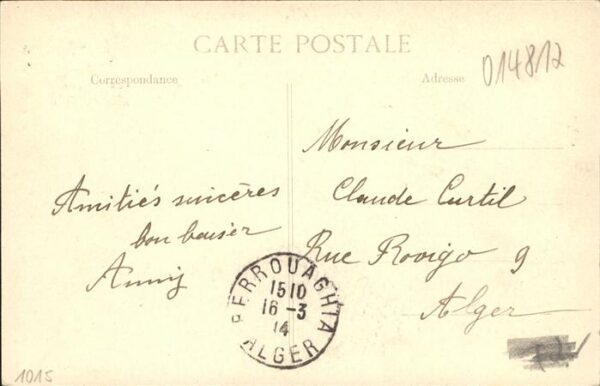 CARTE POSTALE
Correspondance
Adresse
014812
Amitiés sincères
bon baiser
Anny
Monsieur
Claude Curtil
Rue Rovigo 9
Alger
BERROUAGHIA
15 10
16 -3
14
ALGER
1015